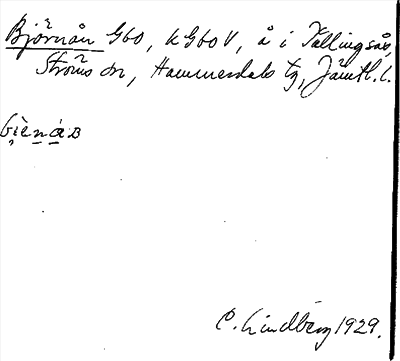 Björnån G60, K G60 V, å i Tullingsås,
Ströms sn, Hammerdals tg, Jämtl. l.
C. Lindberg 1929.